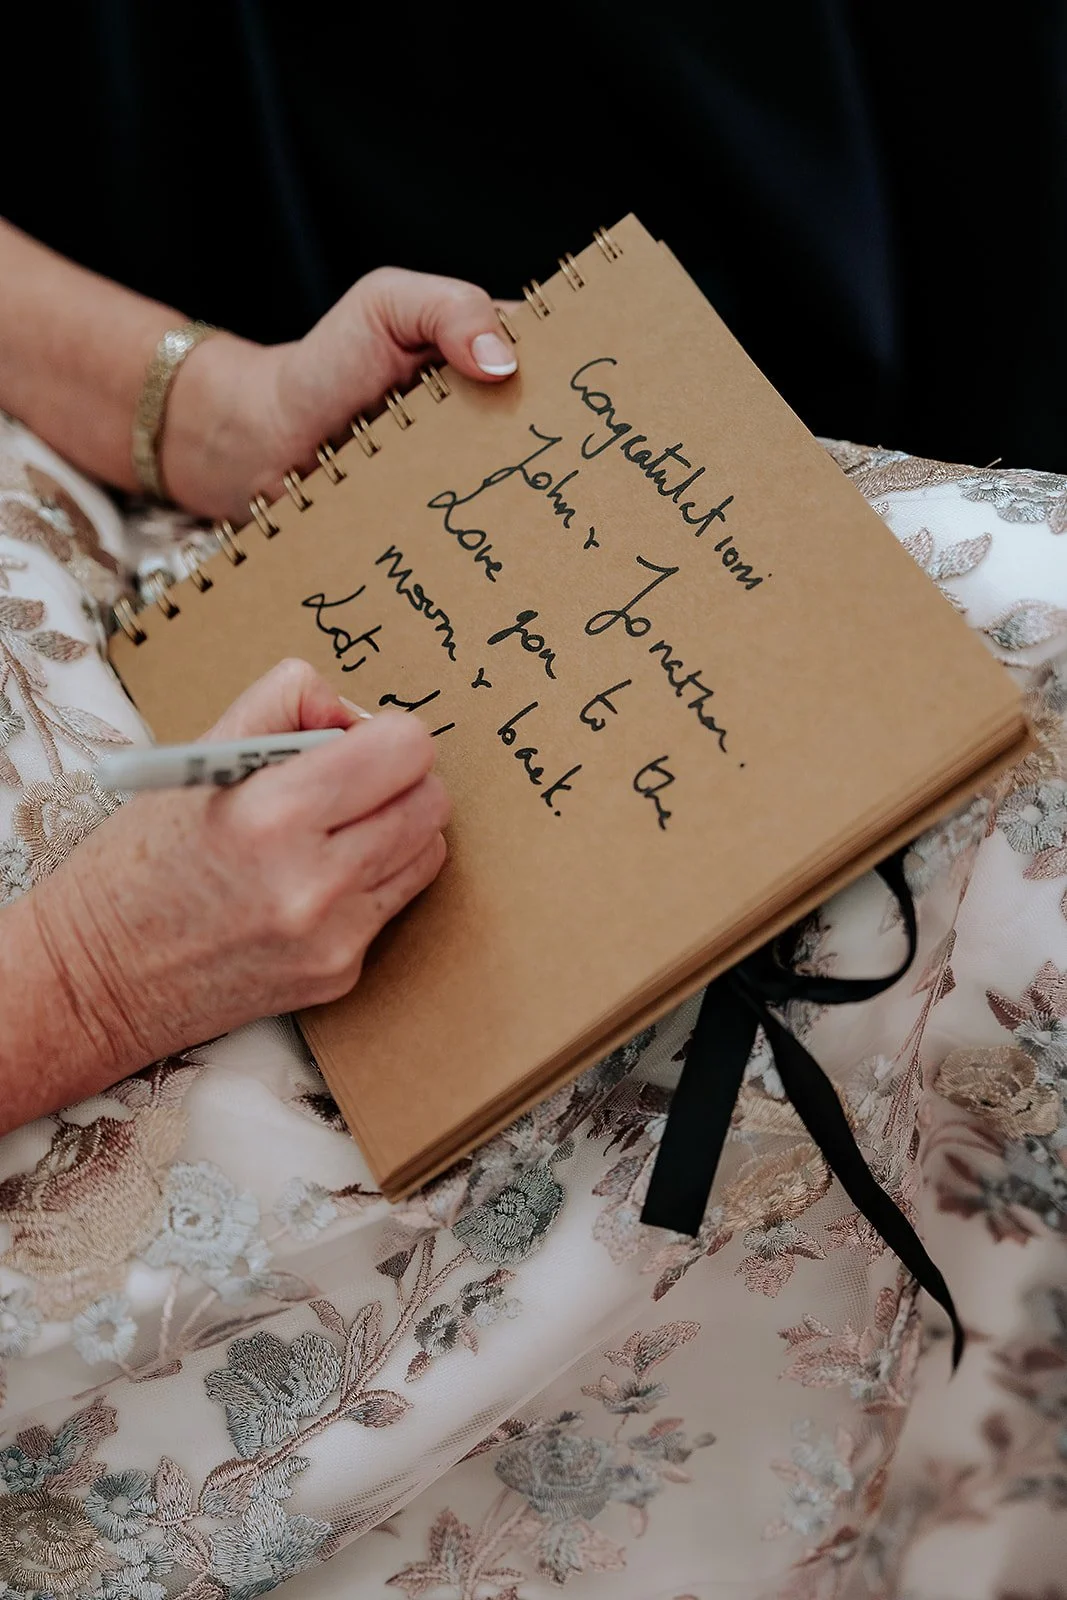 Congratulations
John & Jonathan.
Love you to the
moon & back.
Lots